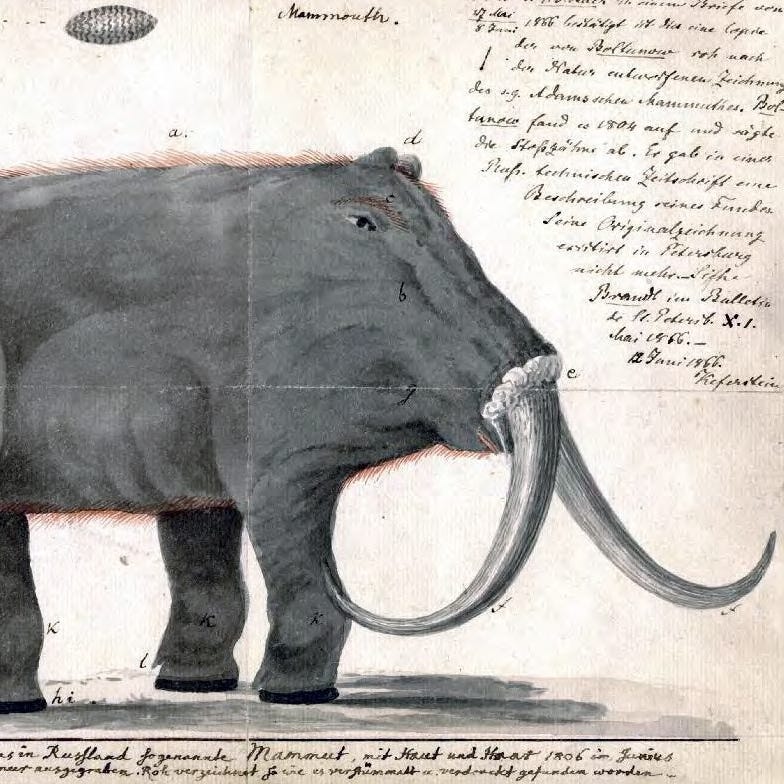 Mammouth.
in einem Briefe von
17 Mai
8 Juni 1866 bestätigt ist dies eine Copie
der von Boltunow roh nach
der Natur entworfenen Zeichnung
des s.g. Adamsschen Mammuthes. Bol-
tunow fand es 1804 auf und sägte
die Stoßzähne ab. Er gab in einer
Russ. technischen Zeitschrift eine
Beschreibung seines Fundes
Seine Originalzeichnung
existirt in Petersburg
nicht mehr. Siehe
Brandt im Bulletin
de St. Petersb. X. 1.
Mai 1866.—
12 Juni 1866.
Keferstein
a.
d
c
b
e
g
f
f
K
K
K
l
h i
in Russland sogenannte Mammut, mit Haut und Haar 1806 im Junius
ausgegraben. Roh verzeichnet so wie es verstümmelt u. verdreckt gefunden worden.